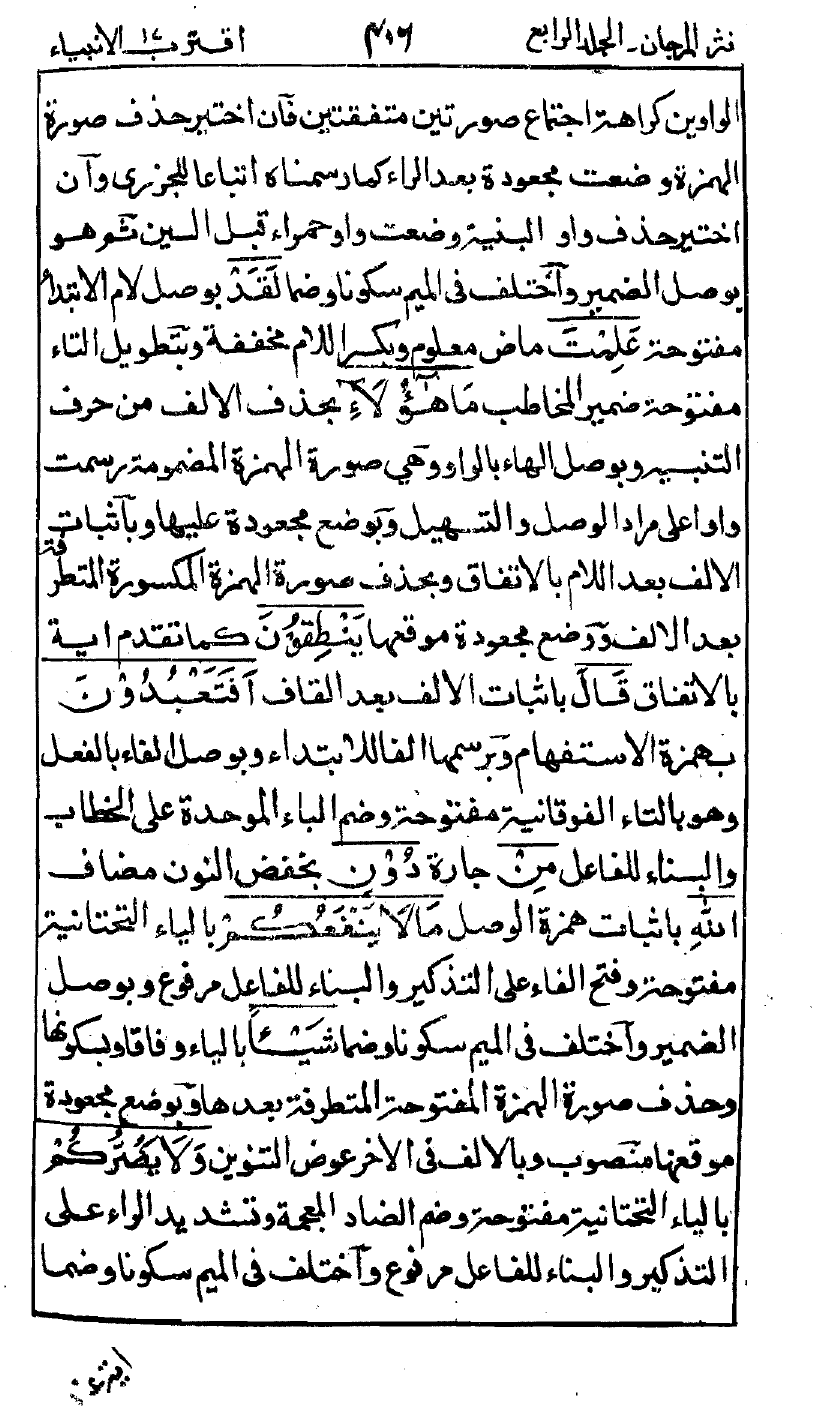 نثر المرجان۔ الجلد الرابع ٤٠٦ اقترب ١٧ الانبياء
الواوين كراهة اجتماع صورتين متفقتين فآن اختير حذف صورة
الهمزة وضعت مجعودة بعد الراء كما رسمناه اتباعا للجزرى وآن
اختير حذف واو البنية وضعت واو حمراء قبل السين ثم هو
بوصل الضمير وآختلف فى الميم سكونا وضما لَقَدْ بوصل لام الابتداء
مفتوحة عَلِمْتَ ماض معلوم وبكسر اللام مخففة وبتطويل التاء
مفتوحة ضمير المخاطب مَا هٰٓؤُلَآءِ بحذف الالف من حرف
التنبيه وبوصل الهاء بالواو وهي صورة الهمزة المضمومة رسمت
واوا على مراد الوصل والتسهيل وبوضع مجعودة عليها وبآثبات
الالف بعد اللام بالاتفاق وبحذف صورة الهمزة المكسورة المتطرفة
بعد الالف ووضع مجعودة موقعها يَنْطِقُوْنَ كما تقدم اية
بالاتفاق قَالَ باثبات الالف بعد القاف اَفَتَعْبُدُوْنَ
بهمزة الاستفهام وبرسمها الفا للابتداء وبوصل الفاء بالفعل
وهو بالتاء الفوقانية مفتوحة وضم الباء الموحدة على الخطاب
والبناء للفاعل مِنْ جارة دُوْنِ بخفض النون مضاف
اللهِ باثبات همزة الوصل مَا لَا يَنْفَعُكُمْ بالياء التحتانية
مفتوحة وفتح الفاء على التذكير والبناء للفاعل مرفوع وبوصل
الضمير وآختلف فى الميم سكونا وضما شَيْـًٔا بالياء وفاقا وبسكونها
وحذف صورة الهمزة المفتوحة المتطرفة بعدها وبوضع مجعودة
موقعها منصوب وبالالف فى الاخر عوض التنوين وَلَا يَضُرُّكُمْ
بالياء التحتانية مفتوحة وضم الضاد المعجمة وتشديد الراء على
التذكير والبناء للفاعل مرفوع وآختلف فى الميم سكونا وضما